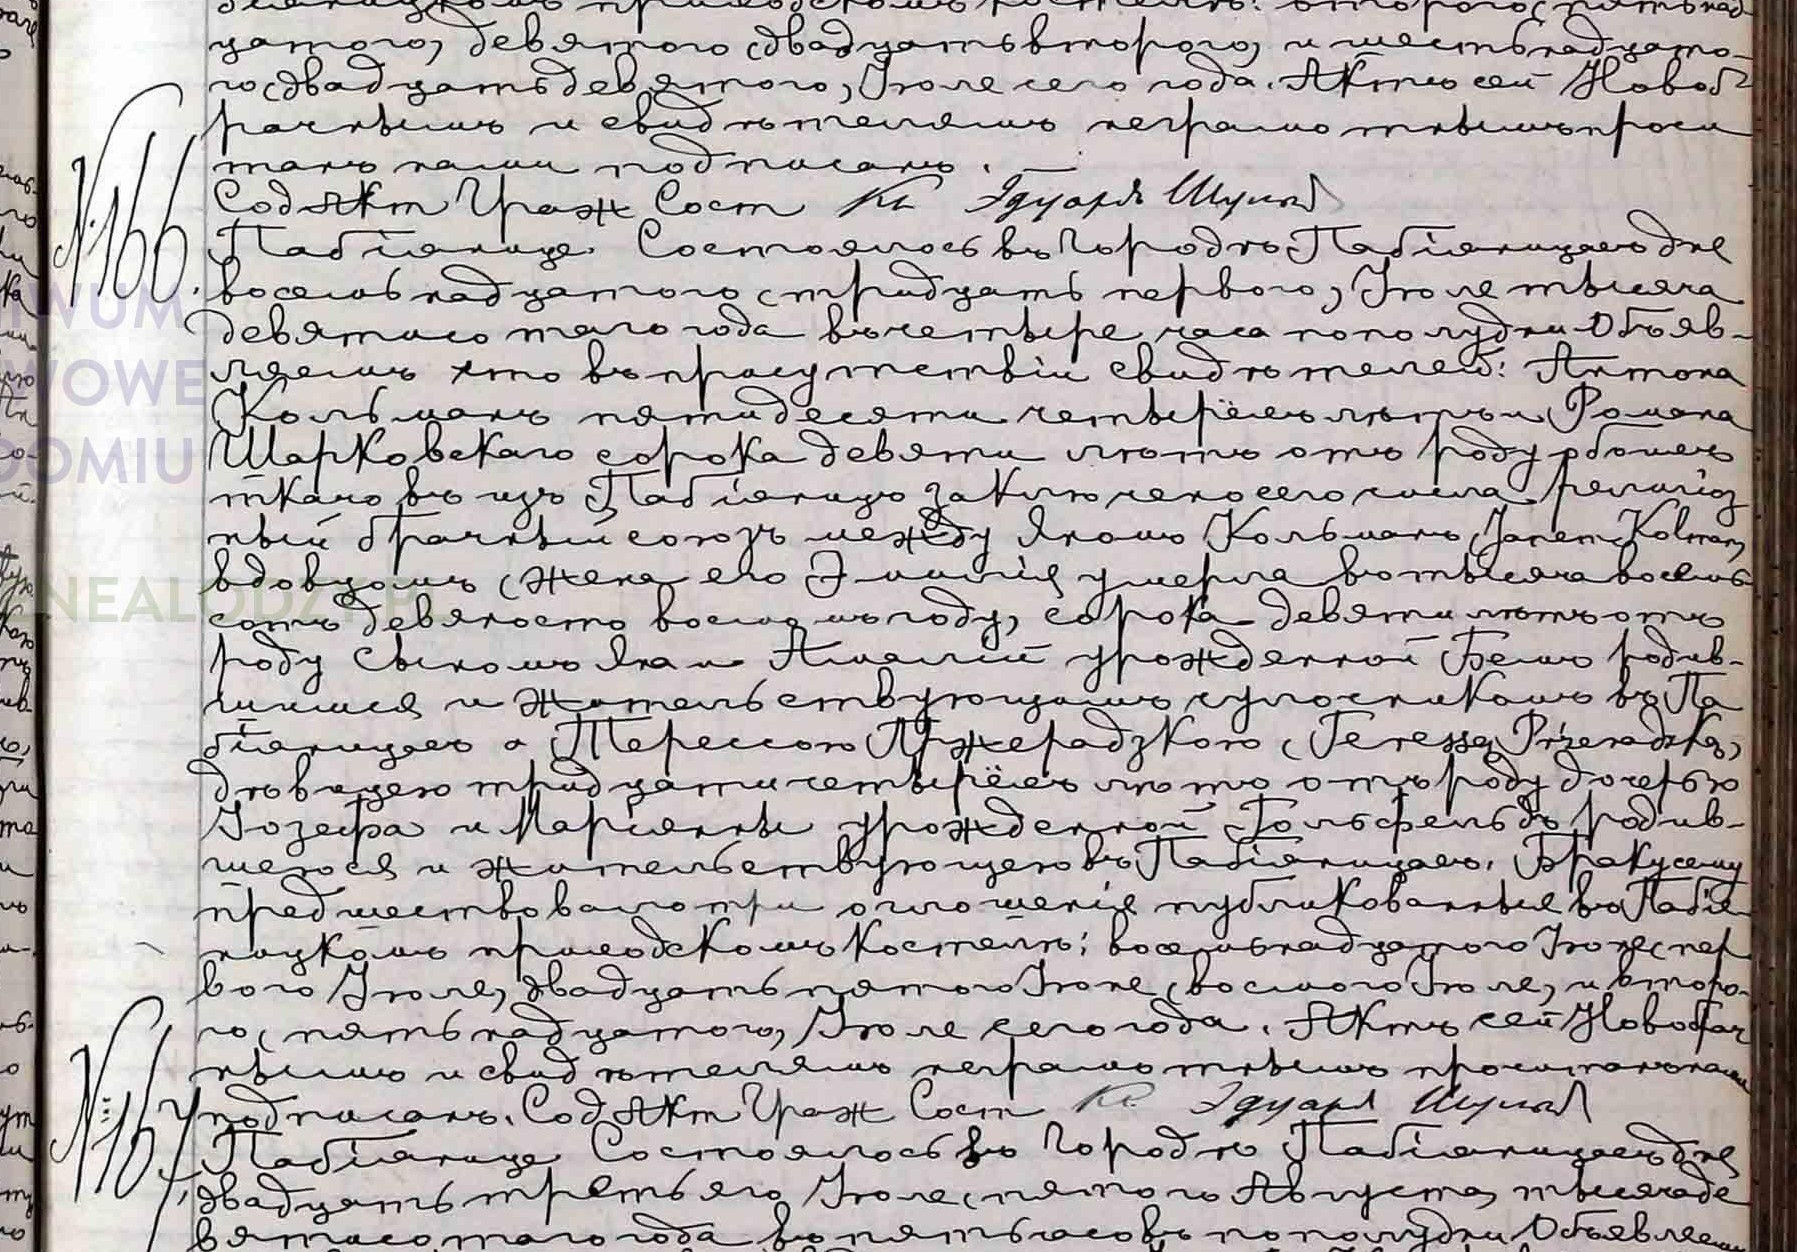 цатого, девятого (двадцать второго) и шестнадцато-
го (двадцать девятого) Іюля сего года. Актъ сей Новоб-
рачнымъ и свидѣтелямъ неграмотнымъ прочи
танъ нами подписанъ.
Сод Акт Граж Сост Кс Эдуардъ
№ 166.
Пабіянице. Состоялось въ городѣ Пабіяницахъ дня
восемьнадцатого (тридцать перваго) Іюля тысяча
девятисотаго года въ четыре часа пополудни Объяв-
ляемъ что въ присутствіи свидѣтелей: Антона
Кольманъ пятидесяти четырёхъ лѣтъ и Романа
Шарковскаго сорока девяти лѣтъ отъ роду обоихъ
ткачовъ изъ Пабіяницъ заключено сего числа религіоз
ный брачный союзъ между Яномъ Кольманъ (Janem Kolman)
вдовцомъ (жена его Эмилія умерла въ тысяча восемь
сотъ девяносто восьмомъ году) сорока девяти лѣтъ отъ
роду сыномъ Яна и Амаліи урожденной Бемъ родив-
шимся и жительствующимъ чулочникомъ въ Па
біяницахъ а Терессою Пржерадзкою (Teressą Przeradzką)
дѣвицею тридцати четырёхъ лѣтъ отъ роду дочерью
Іозефа и Маріянны урожденной Гольдфельдъ родив-
шеюся и жительствующею въ Пабіяницахъ. Браку сему
предшествовало три оглошенія публикованныя въ Пабія
ницкомъ приходскомъ костелѣ: восемьнадцатого Іюня (пер
вого Іюля) двадцать пятого Іюня (восмого Іюля) и второ-
го (пятьнадцатого) Іюля сего года. Актъ сей Новобрач
нымъ и свидѣтелямъ неграмотнымъ прочитанъ нами
подписанъ. Сод Акт Граж Сост Кс. Эдуардъ
№ 167.
Пабіянице Состоялось въ городѣ Пабіяницахъ дня
двадцать третьяго Іюля (пятого Августа) тысяча де
вятисотаго года въ пять часовъ пополудни Объявляемъ